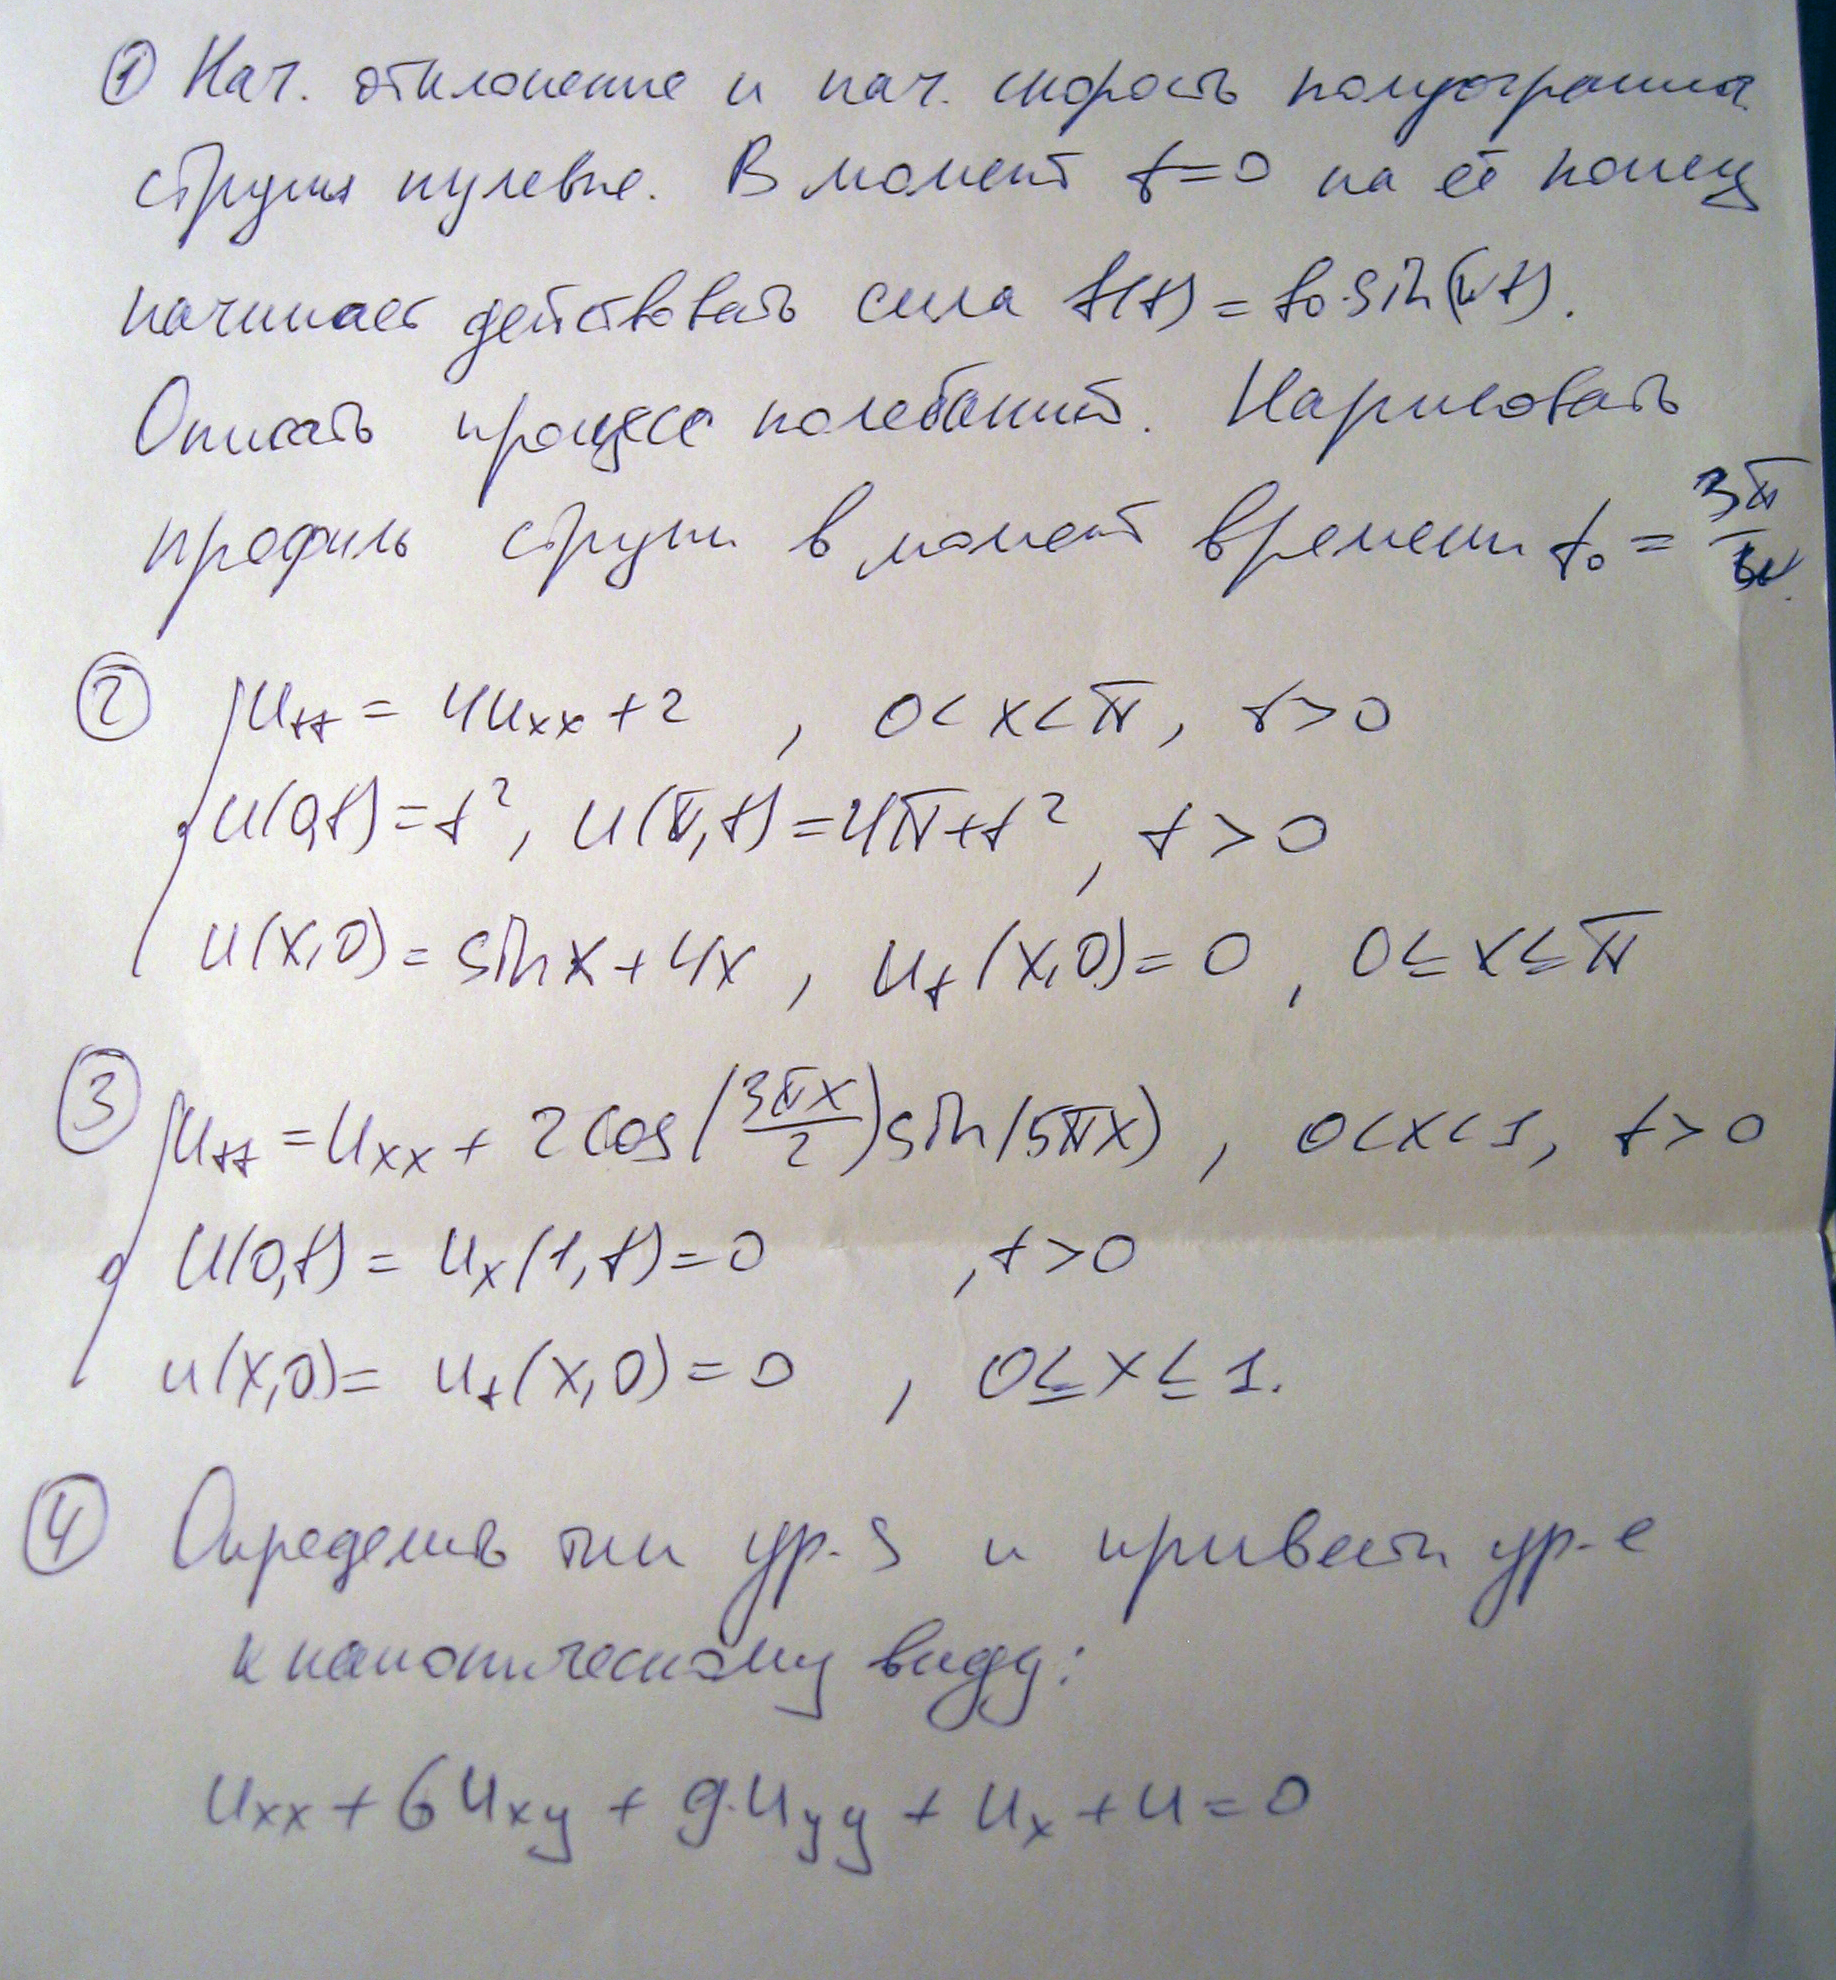 ① Нач. отклонение и нач. скорость полуогранич.
струны нулевые. В момент t=0 на её конец
начинает действовать сила f(t) = f₀·sin(ωt).
Описать процесс колебаний. Нарисовать
профиль струны в момент времени t₀ = 3π/ω.
② { uₜₜ = 4uₓₓ + 2 , 0 < x < π, t > 0
u(0,t) = t², u(π,t) = 4π + t² , t > 0
u(x,0) = sin x + 4x , uₜ(x,0) = 0 , 0 ≤ x ≤ π
③ { uₜₜ = uₓₓ + 2cos(3πx/2)sin(5πx) , 0 < x < 1, t > 0
u(0,t) = uₓ(1,t) = 0 , t > 0
u(x,0) = uₜ(x,0) = 0 , 0 ≤ x ≤ 1.
④ Определить тип ур-я и привести ур-е
к каноническому виду:
uₓₓ + 6uₓᵧ + 9·uᵧᵧ + uₓ + u = 0